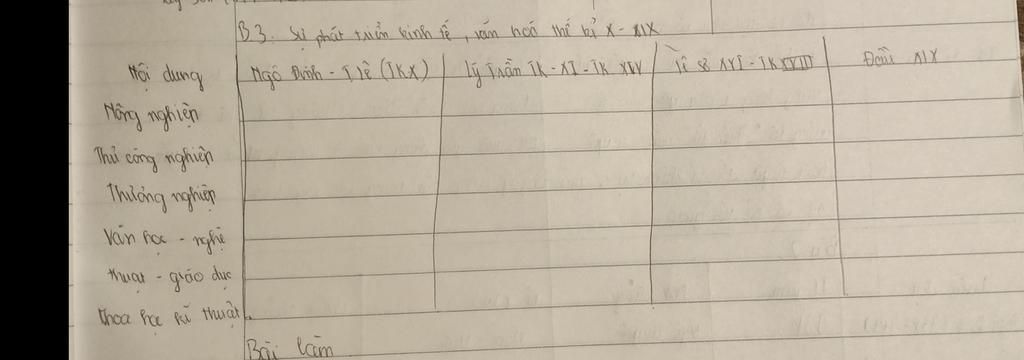 B3. Sự phát triển kinh tế, văn hoá thế kỉ X - XIX
Nội dung Ngô Đinh - T.lê (TKX) Lý Trần TK - XI - TK XIV XVI - TK XVIII Đầu XIX
Nông nghiệp
Thủ công nghiệp
Thương nghiệp
Văn học - nghệ
thuật - giáo dục
Khoa học kĩ thuật.
Bài làm